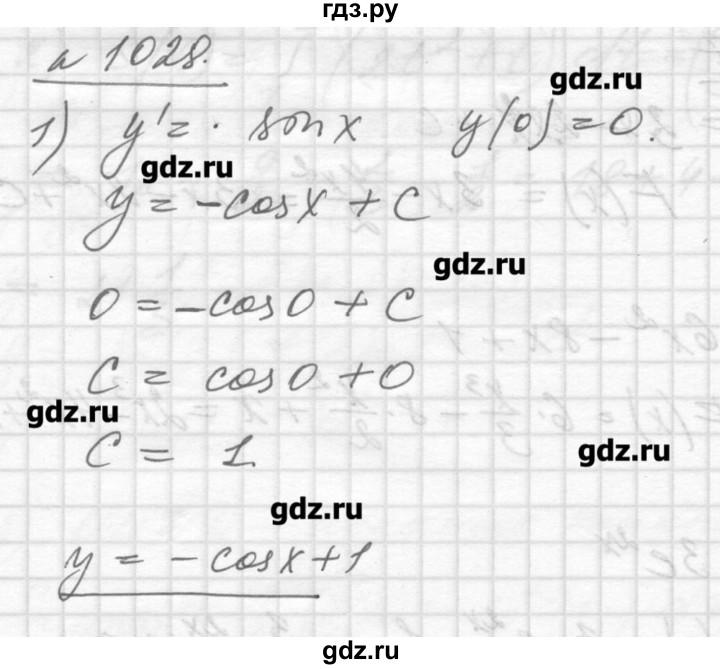 гдз.ру
№ 1028.
gdz.ru
1) y' = · sin x y(0) = 0.
gdz.ru
y = -cos x + C
gdz.ru
0 = -cos 0 + C
C = cos 0 + 0
gdz.ru
C = 1.
gdz.ru
gdz.ru
y = -cos x + 1
gdz.ru